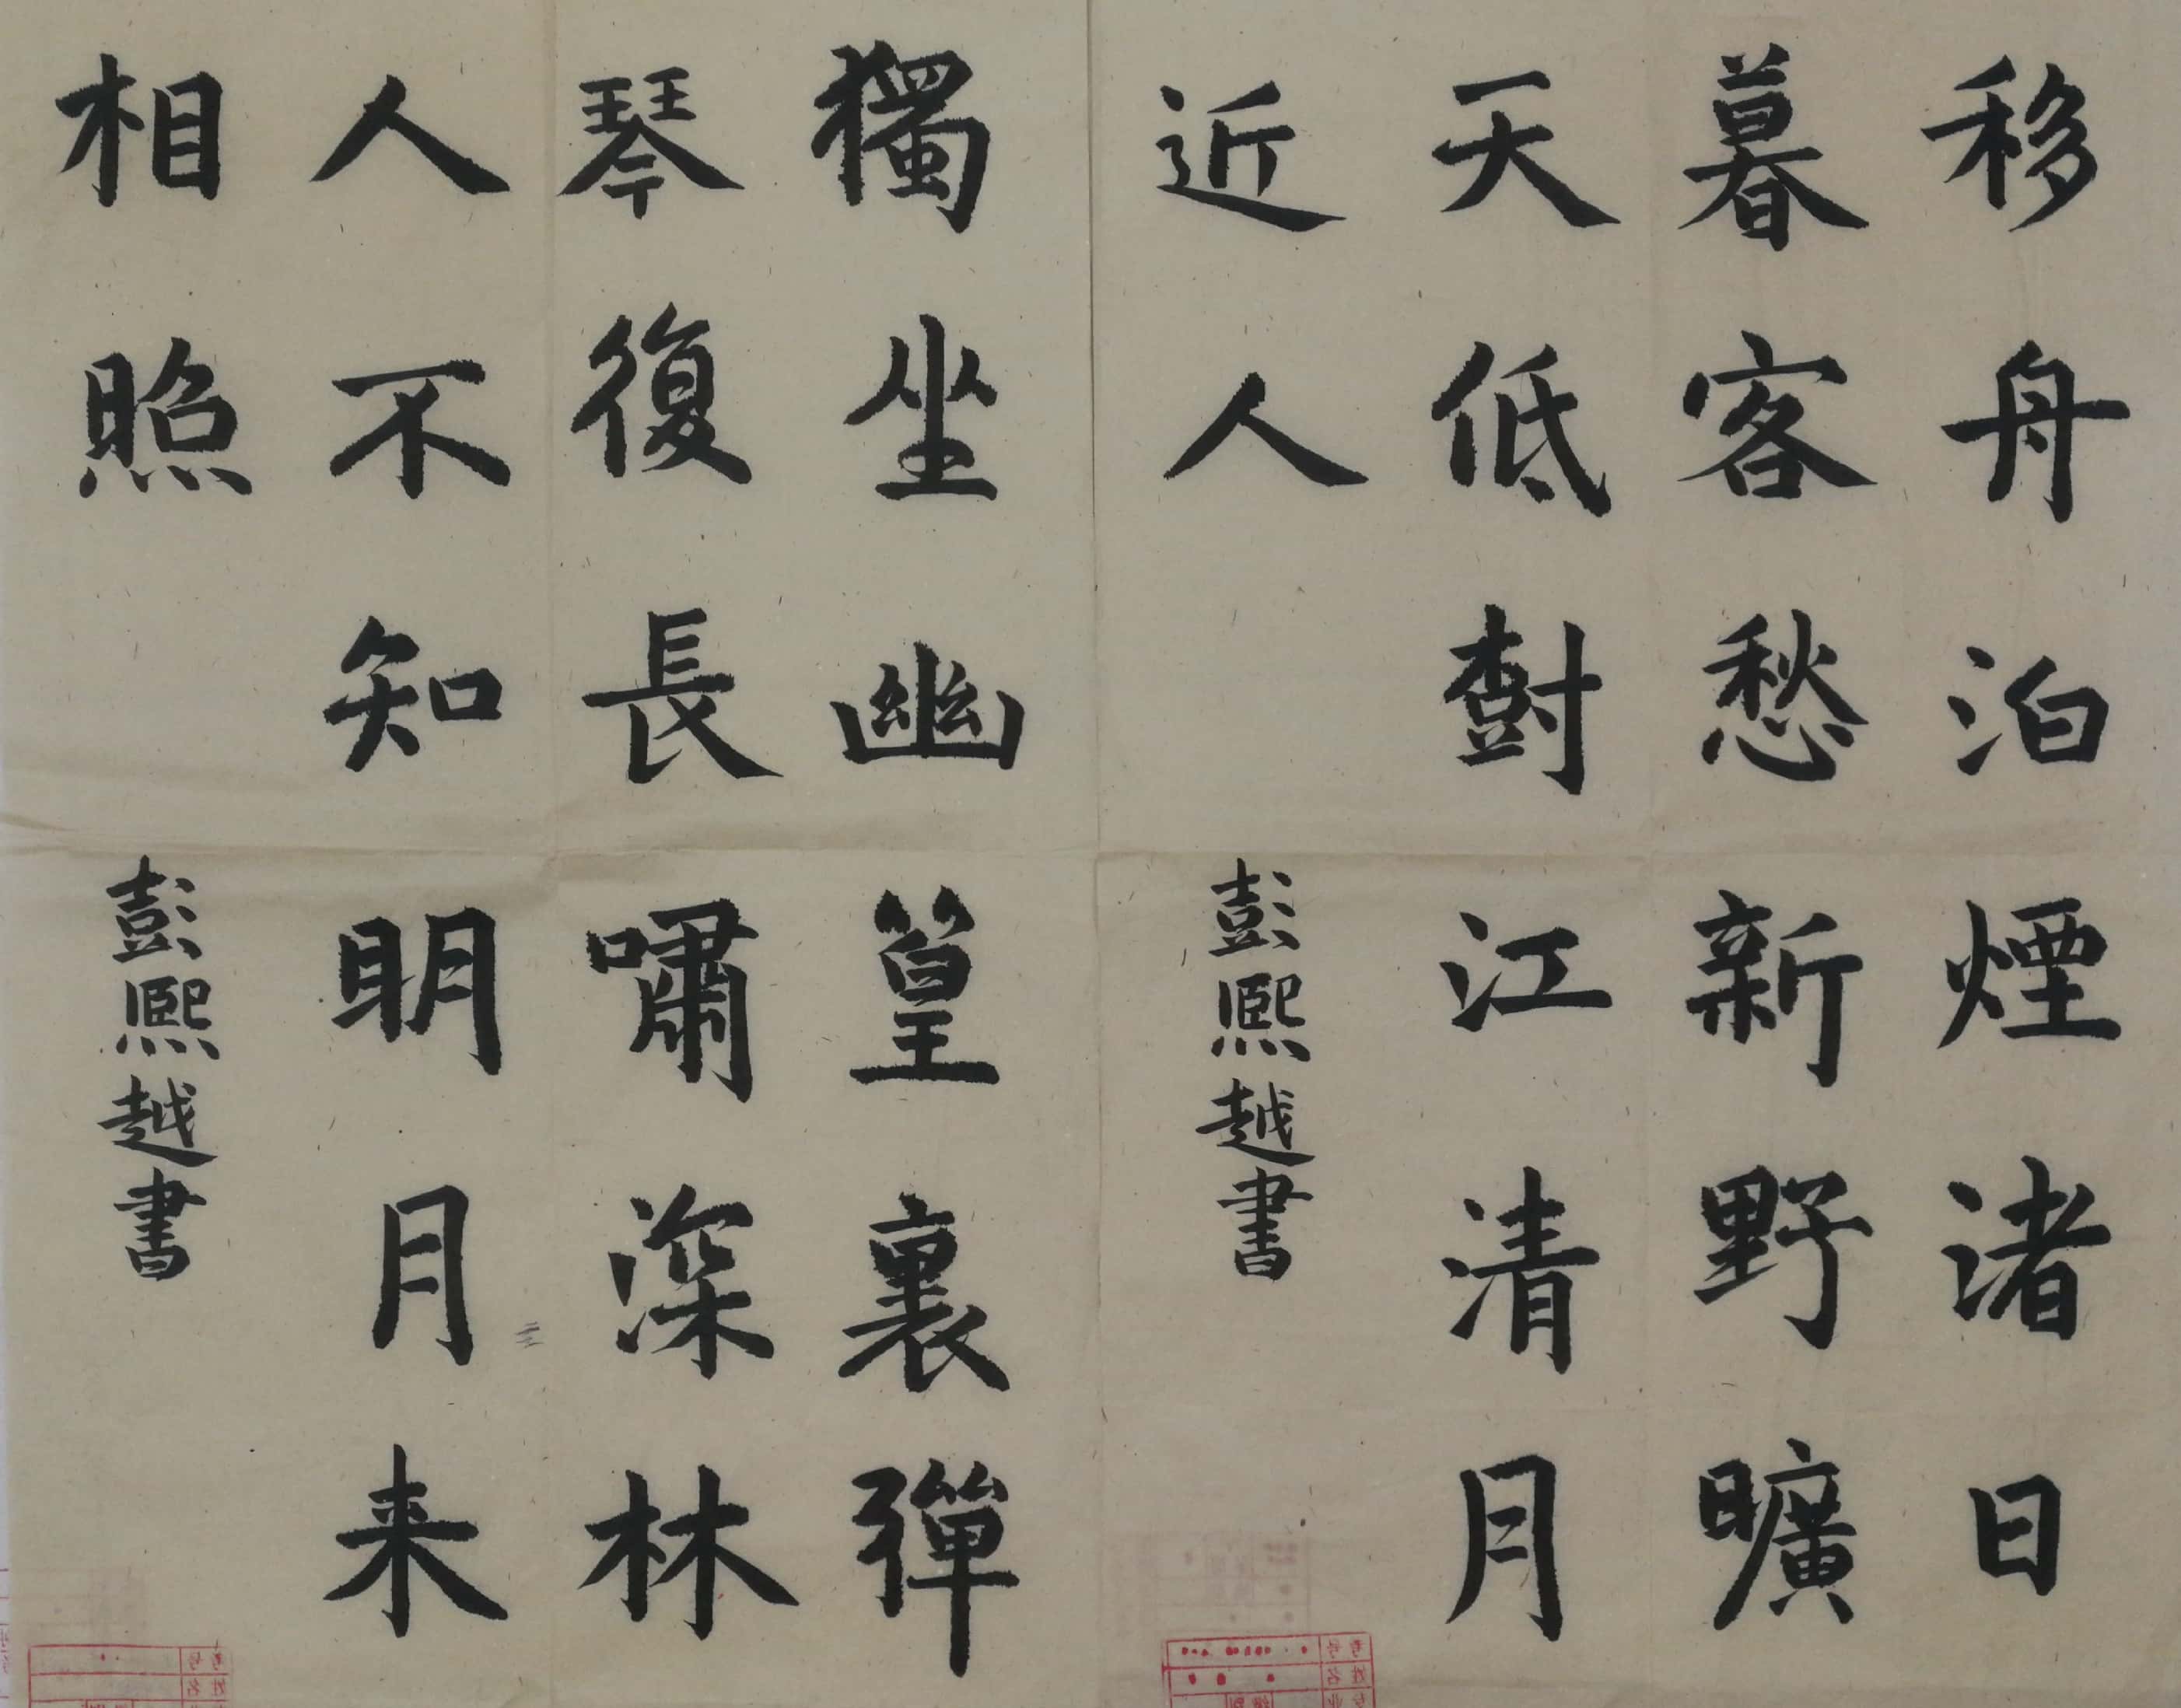 移舟泊煙渚日
暮客愁新野曠
天低樹江清月
近人
彭熙越書
獨坐幽篁裏彈
琴復長嘯深林
人不知明月来
相照
彭熙越書